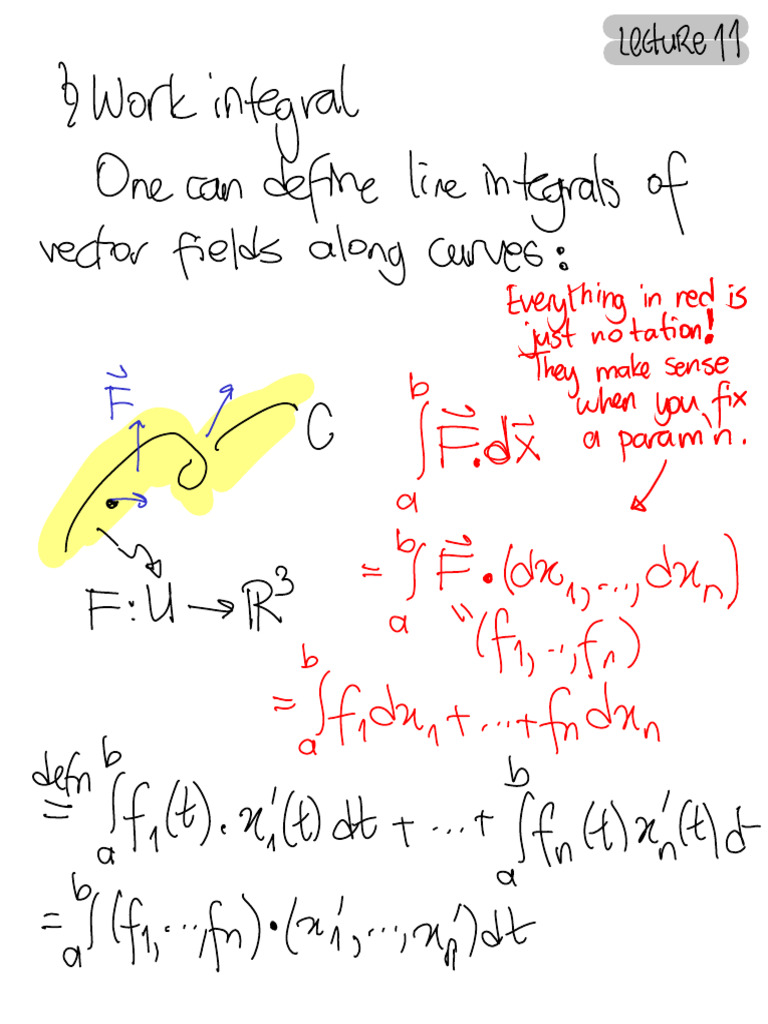 Lecture 11
§ Work integral
One can define line integrals of
vector fields along curves:
Everything in red is
just notation!
They make sense
when you fix
a param'n.
F⃗
C
∫_a^b F⃗.dx⃗
F:U→ℝ³
= ∫_a^b F⃗•(dx₁,...,dxₙ)
"(f₁,..,fₙ)
= ∫_a^b f₁dx₁+...+fₙdxₙ
defn
= ∫_a^b f₁(t).x₁'(t)dt+...+ ∫_a^b fₙ(t)xₙ'(t)dt
= ∫_a^b (f₁,...,fₙ)•(x₁',...,xₙ')dt